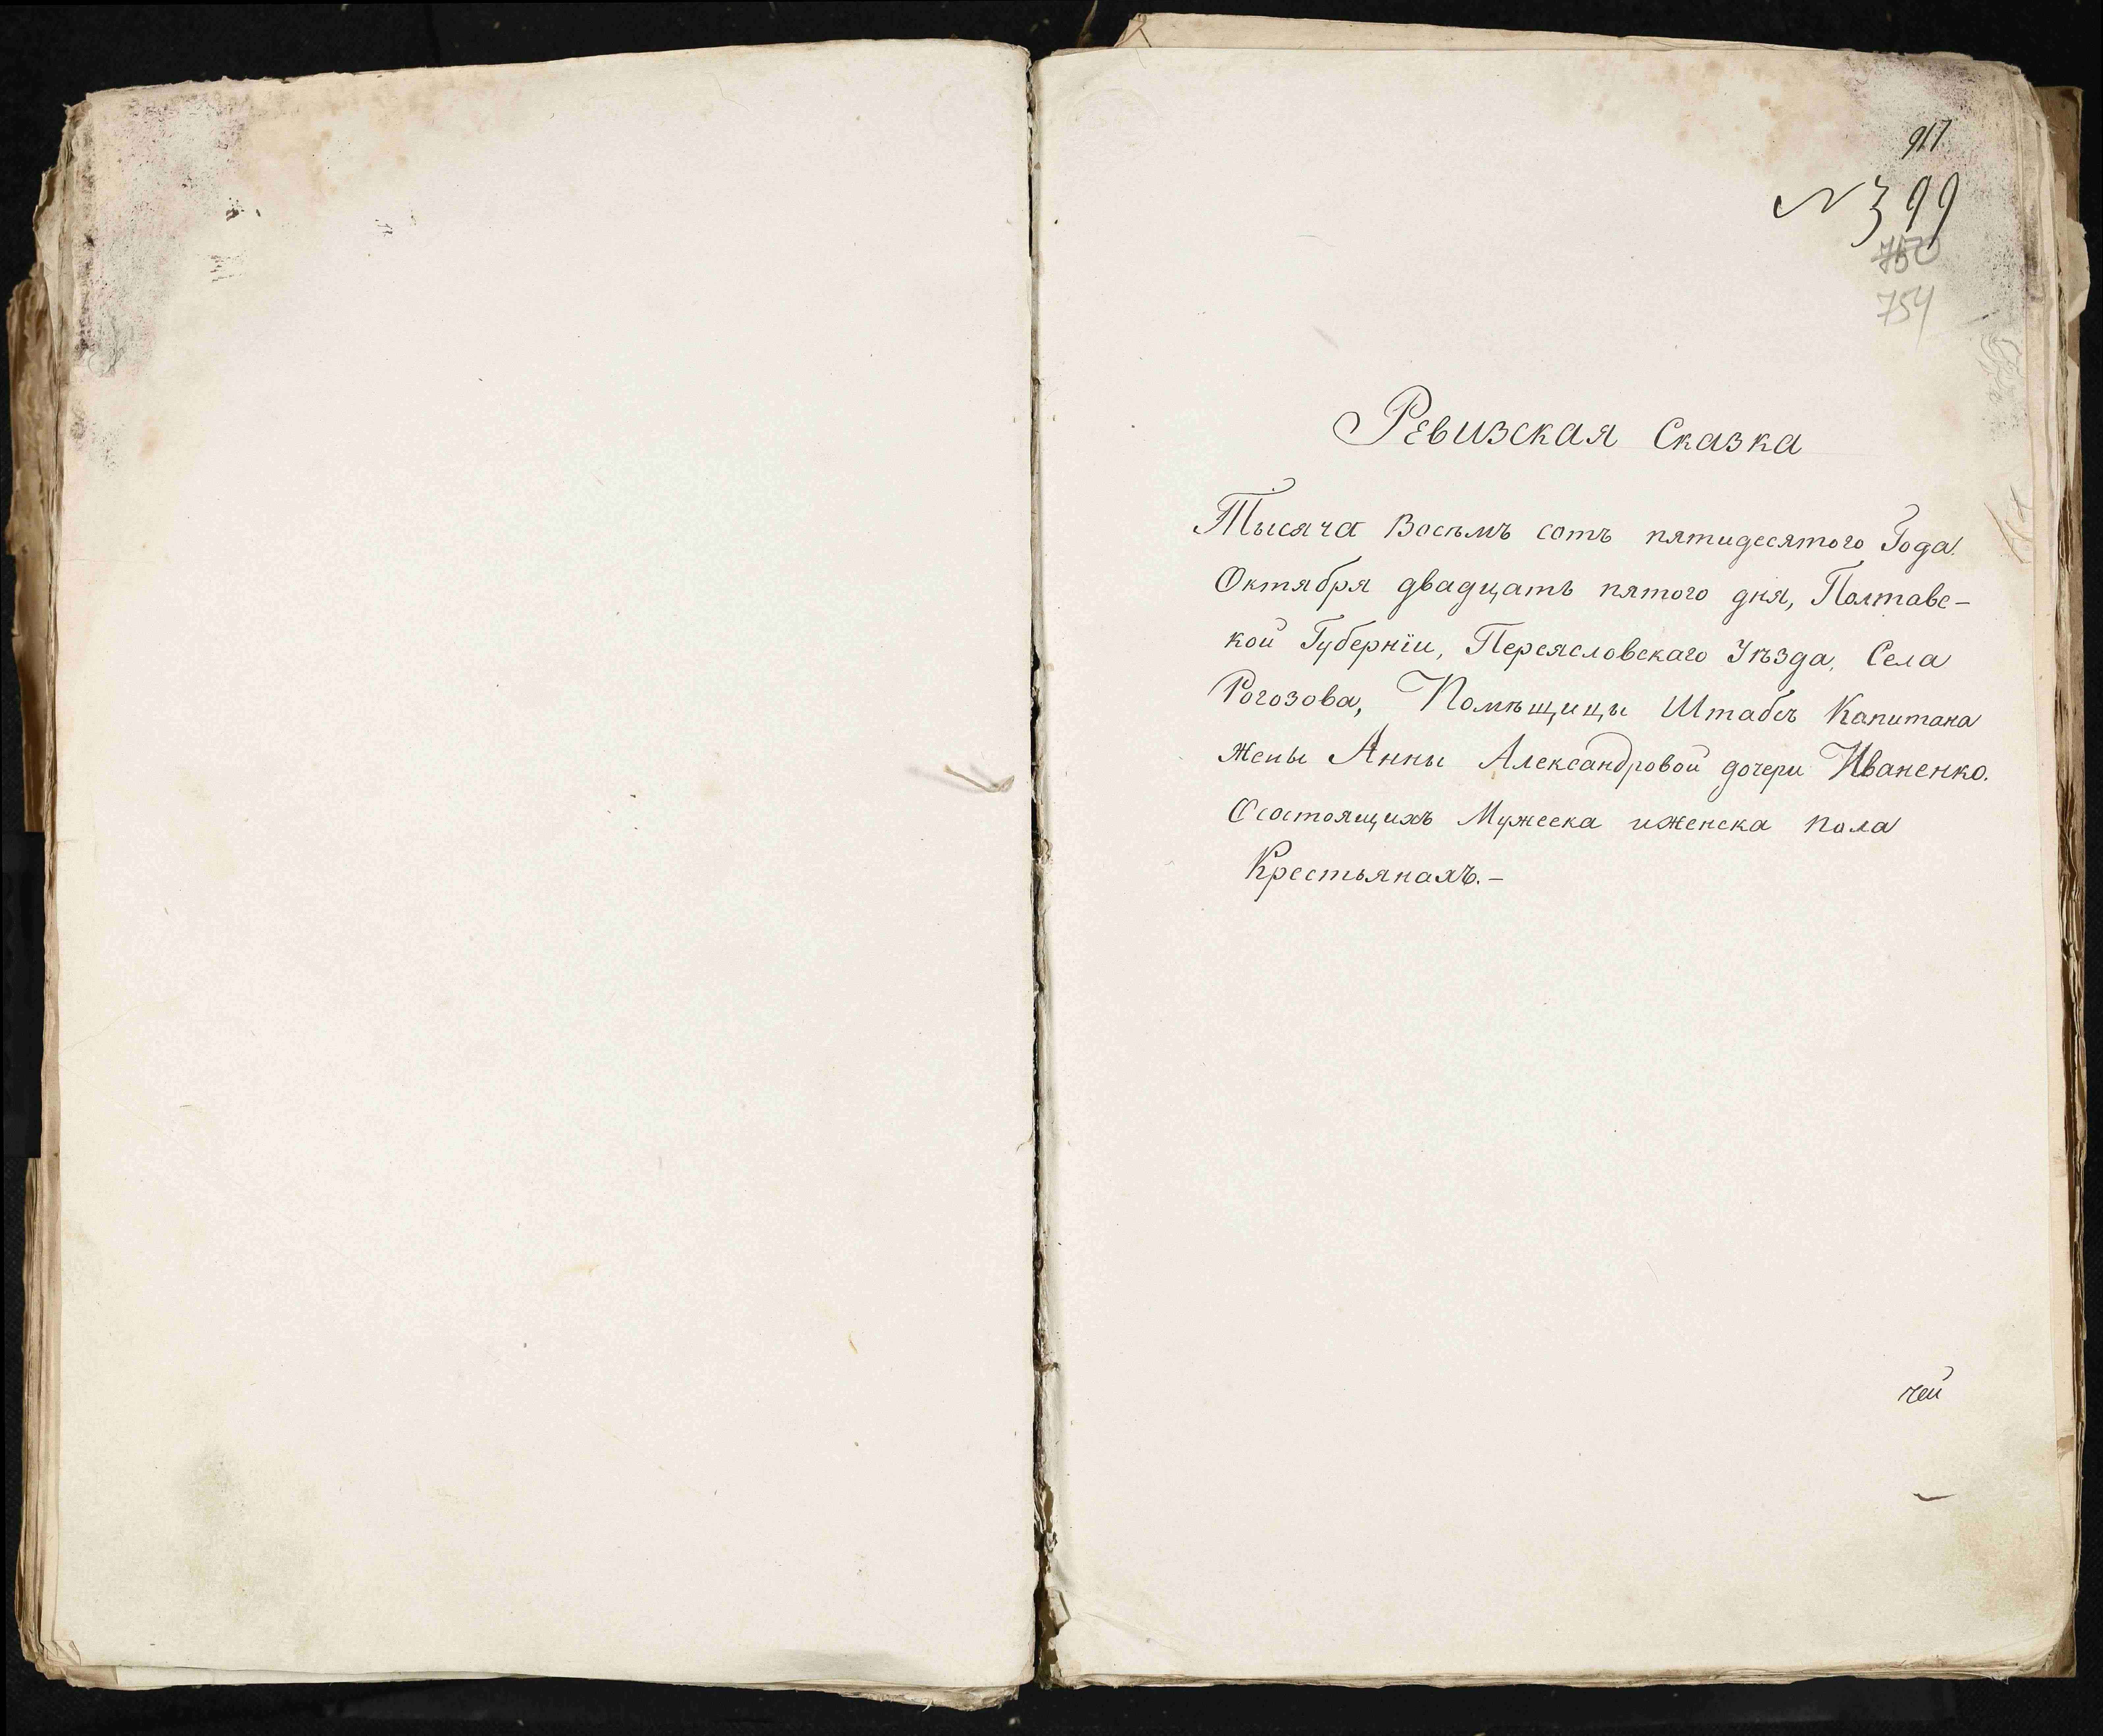 917
N 399
750
754
Ревизская Сказка
Тысяча Восѣмъ сотъ пятидесятого Года.
Октября двадцать пятого дня, Полтавс-
кой Губернїи, Переясловскаго Уѣзда, Села
Рогозова, Помѣщицы Штабсъ Капитана
Жены Анны Александровой дочери Иваненко.
Осостоящихъ Мужеска иженска пола
Крестьянахъ.-
чей